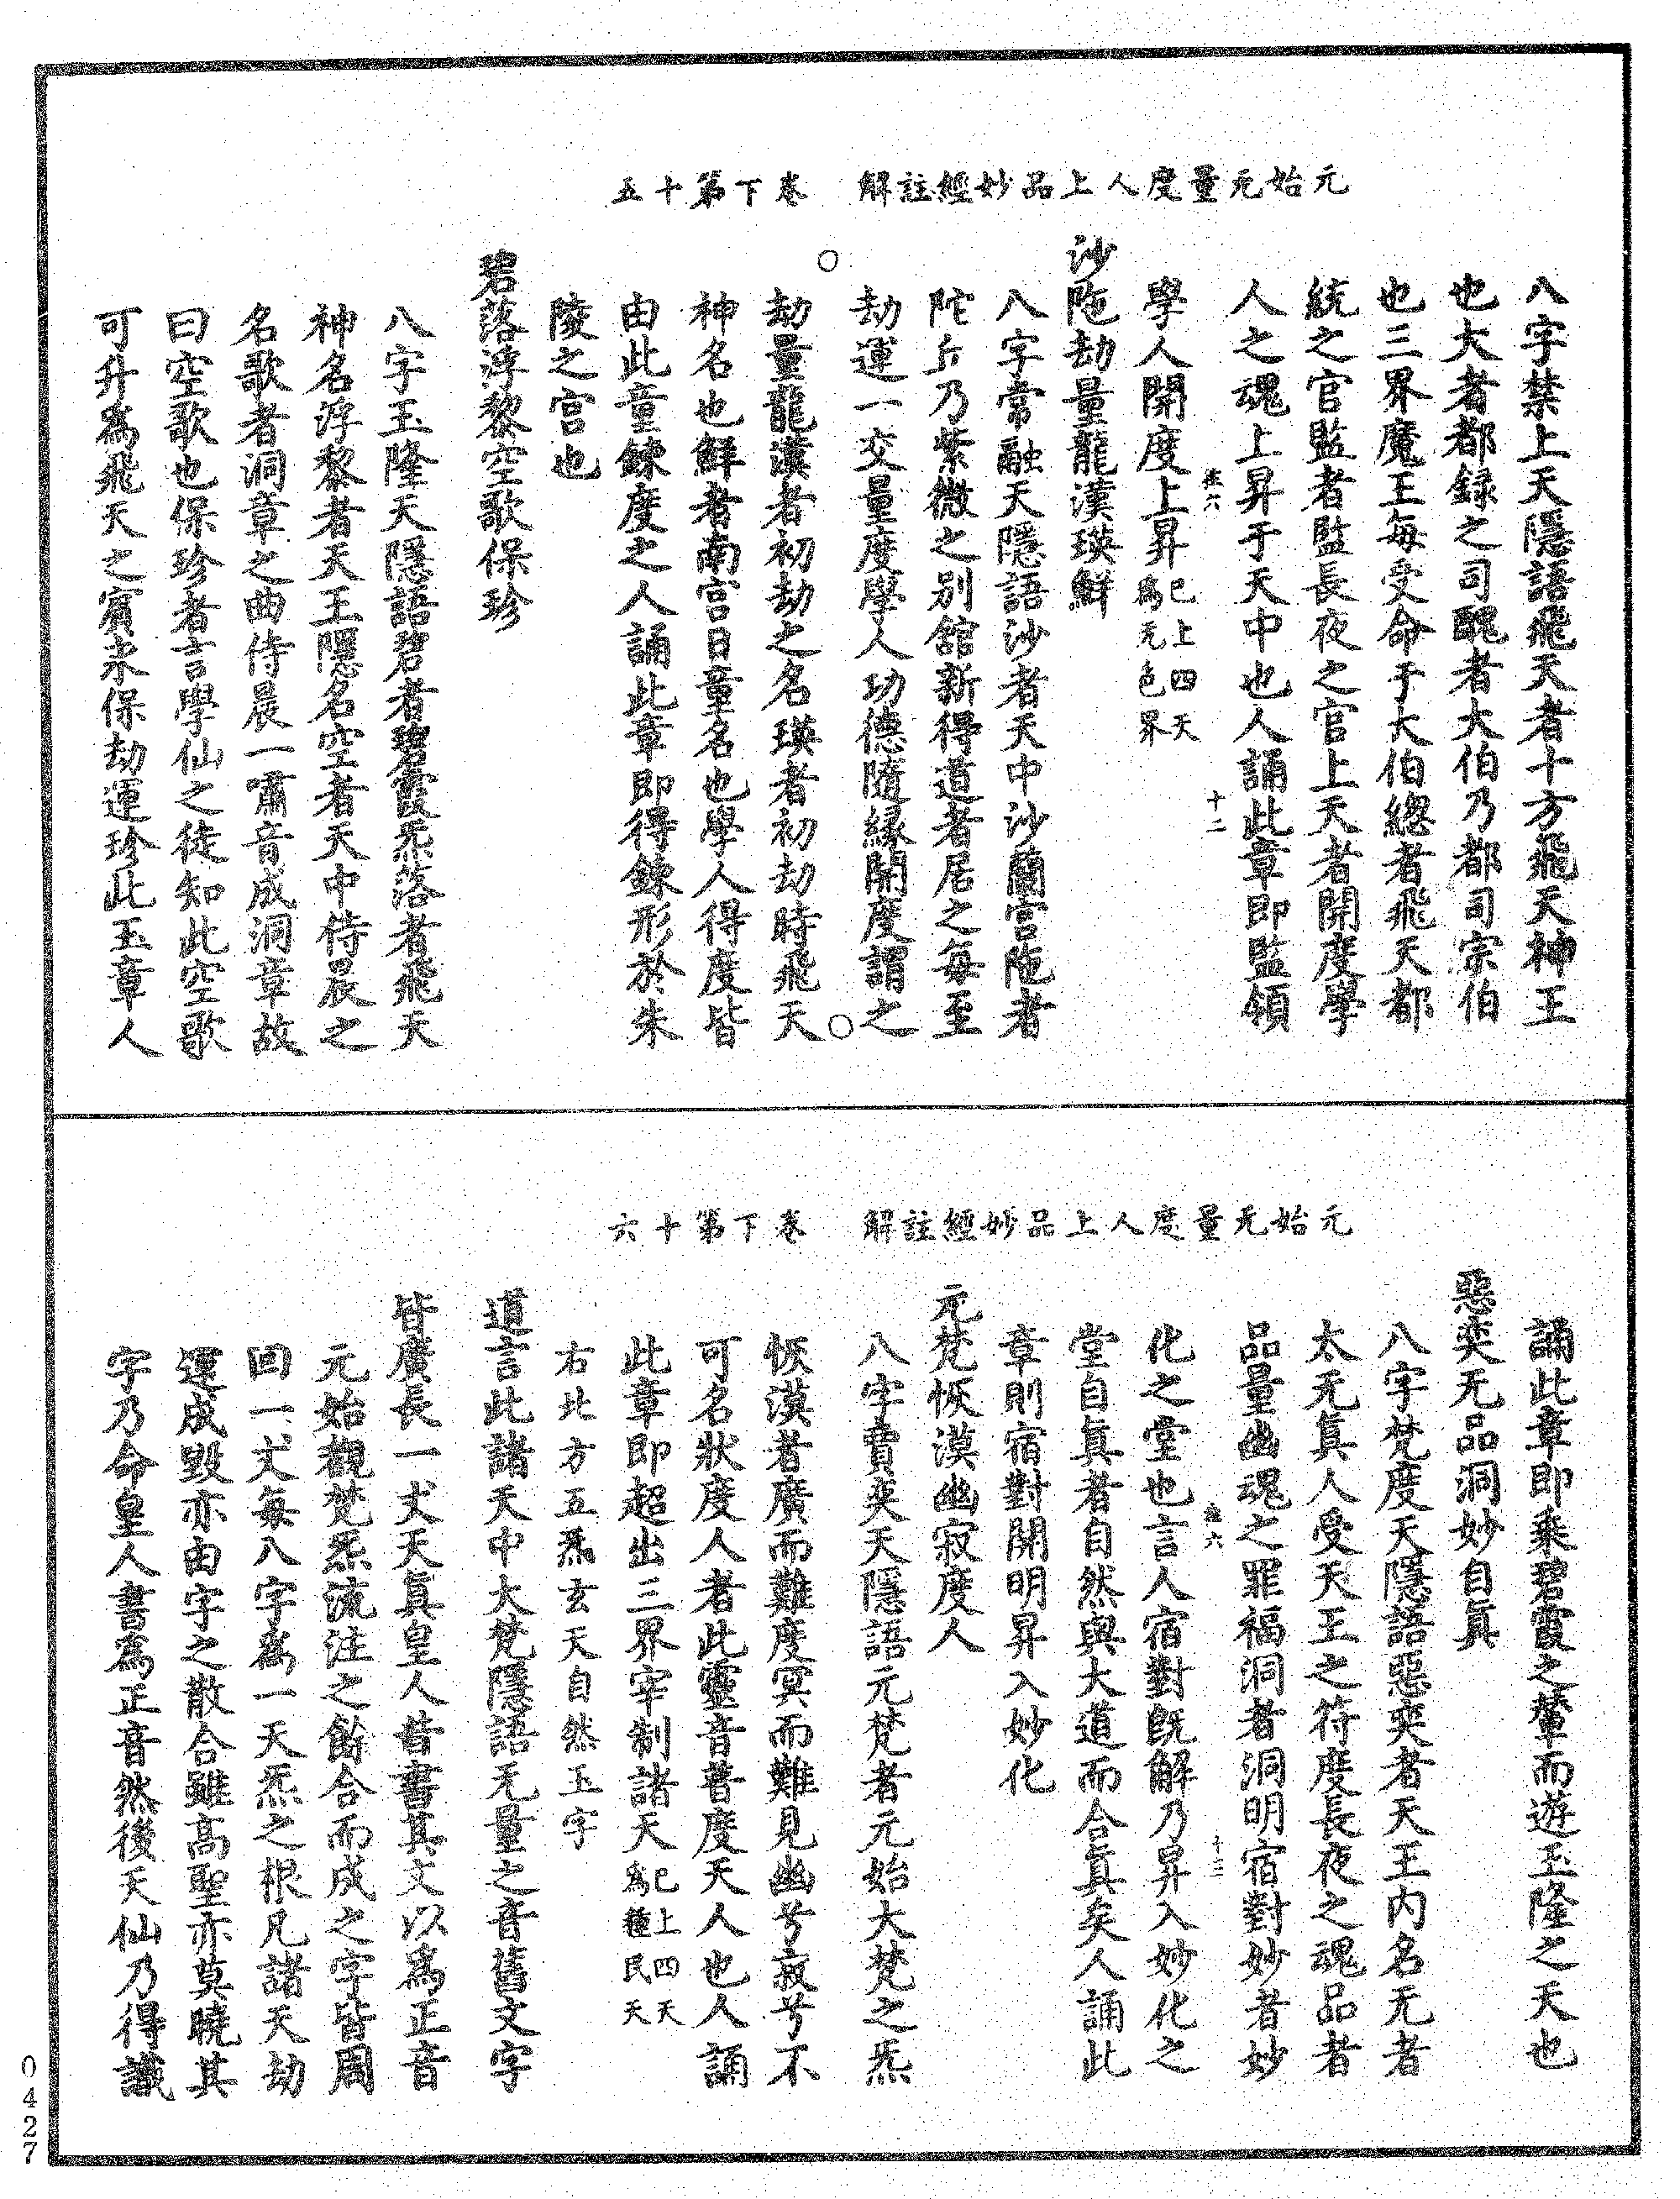 元始无量度人上品妙經註解　卷下第十五
八字禁上天隱語飛天者十方飛天神王
也大者都録之司醜者大伯乃都司宗伯
也三界魔王每受命于大伯總者飛天都
統之官監者監長夜之官上天者開度學
人之魂上昇于天中也人誦此章即監領
學人開度上昇已上四天爲无色界
沙陁劫量龍漢瑛鮮
八字常融天隱語沙者天中沙蘭宮陁者
陀丘乃紫微之别舘新得道者居之每至
劫運一交量度學人功德隨緣開度謂之
劫量龍漢者初劫之名瑛者初劫時飛天
神名也鮮者南宮日童名也學人得度皆
由此童鍊度之人誦此章即得鍊形於朱
陵之宮也
碧落浮黎空歌保珍
八字玉隆天隱語碧者碧霞炁落者飛天
神名浮黎者天王隱名空者天中侍晨之
名歌者洞章之曲侍晨一嘯音成洞章故
曰空歌也保珍者言學仙之徒知此空歌
可升爲飛天之賓未保劫運珍此玉章人
元始无量度人上品妙經註解　卷下第十六
誦此章即乘碧霞之輦而遊玉隆之天也
惡奕无品洞妙自真
八字梵度天隱語惡奕者天王内名无者
太无真人受天王之符度長夜之魂品者
品量幽魂之罪福洞者洞明宿對妙者妙
化之堂也言人宿對既解乃昇入妙化之
堂自真者自然與大道而合真矣人誦此
章則宿對開明昇入妙化
元梵恢漠幽寂度人
八字賈奕天隱語元梵者元始大梵之炁
恢漠者廣而難度冥而難見幽兮寂兮不
可名狀度人者此靈音普度天人也人誦
此章即超出三界宰制諸天已上四天爲種民天
右北方五炁玄天自然玉字
道言此諸天中大梵隱語无量之音舊文字
皆廣長一丈天真皇人昔書其文以爲正音
元始觀梵炁流注之餘合而成之字皆周
回一丈每八字爲一天炁之根凡諸天劫
運成毀亦由字之散合雖高聖亦莫曉其
字乃命皇人書爲正音然後天仙乃得識
十二
十三
0427